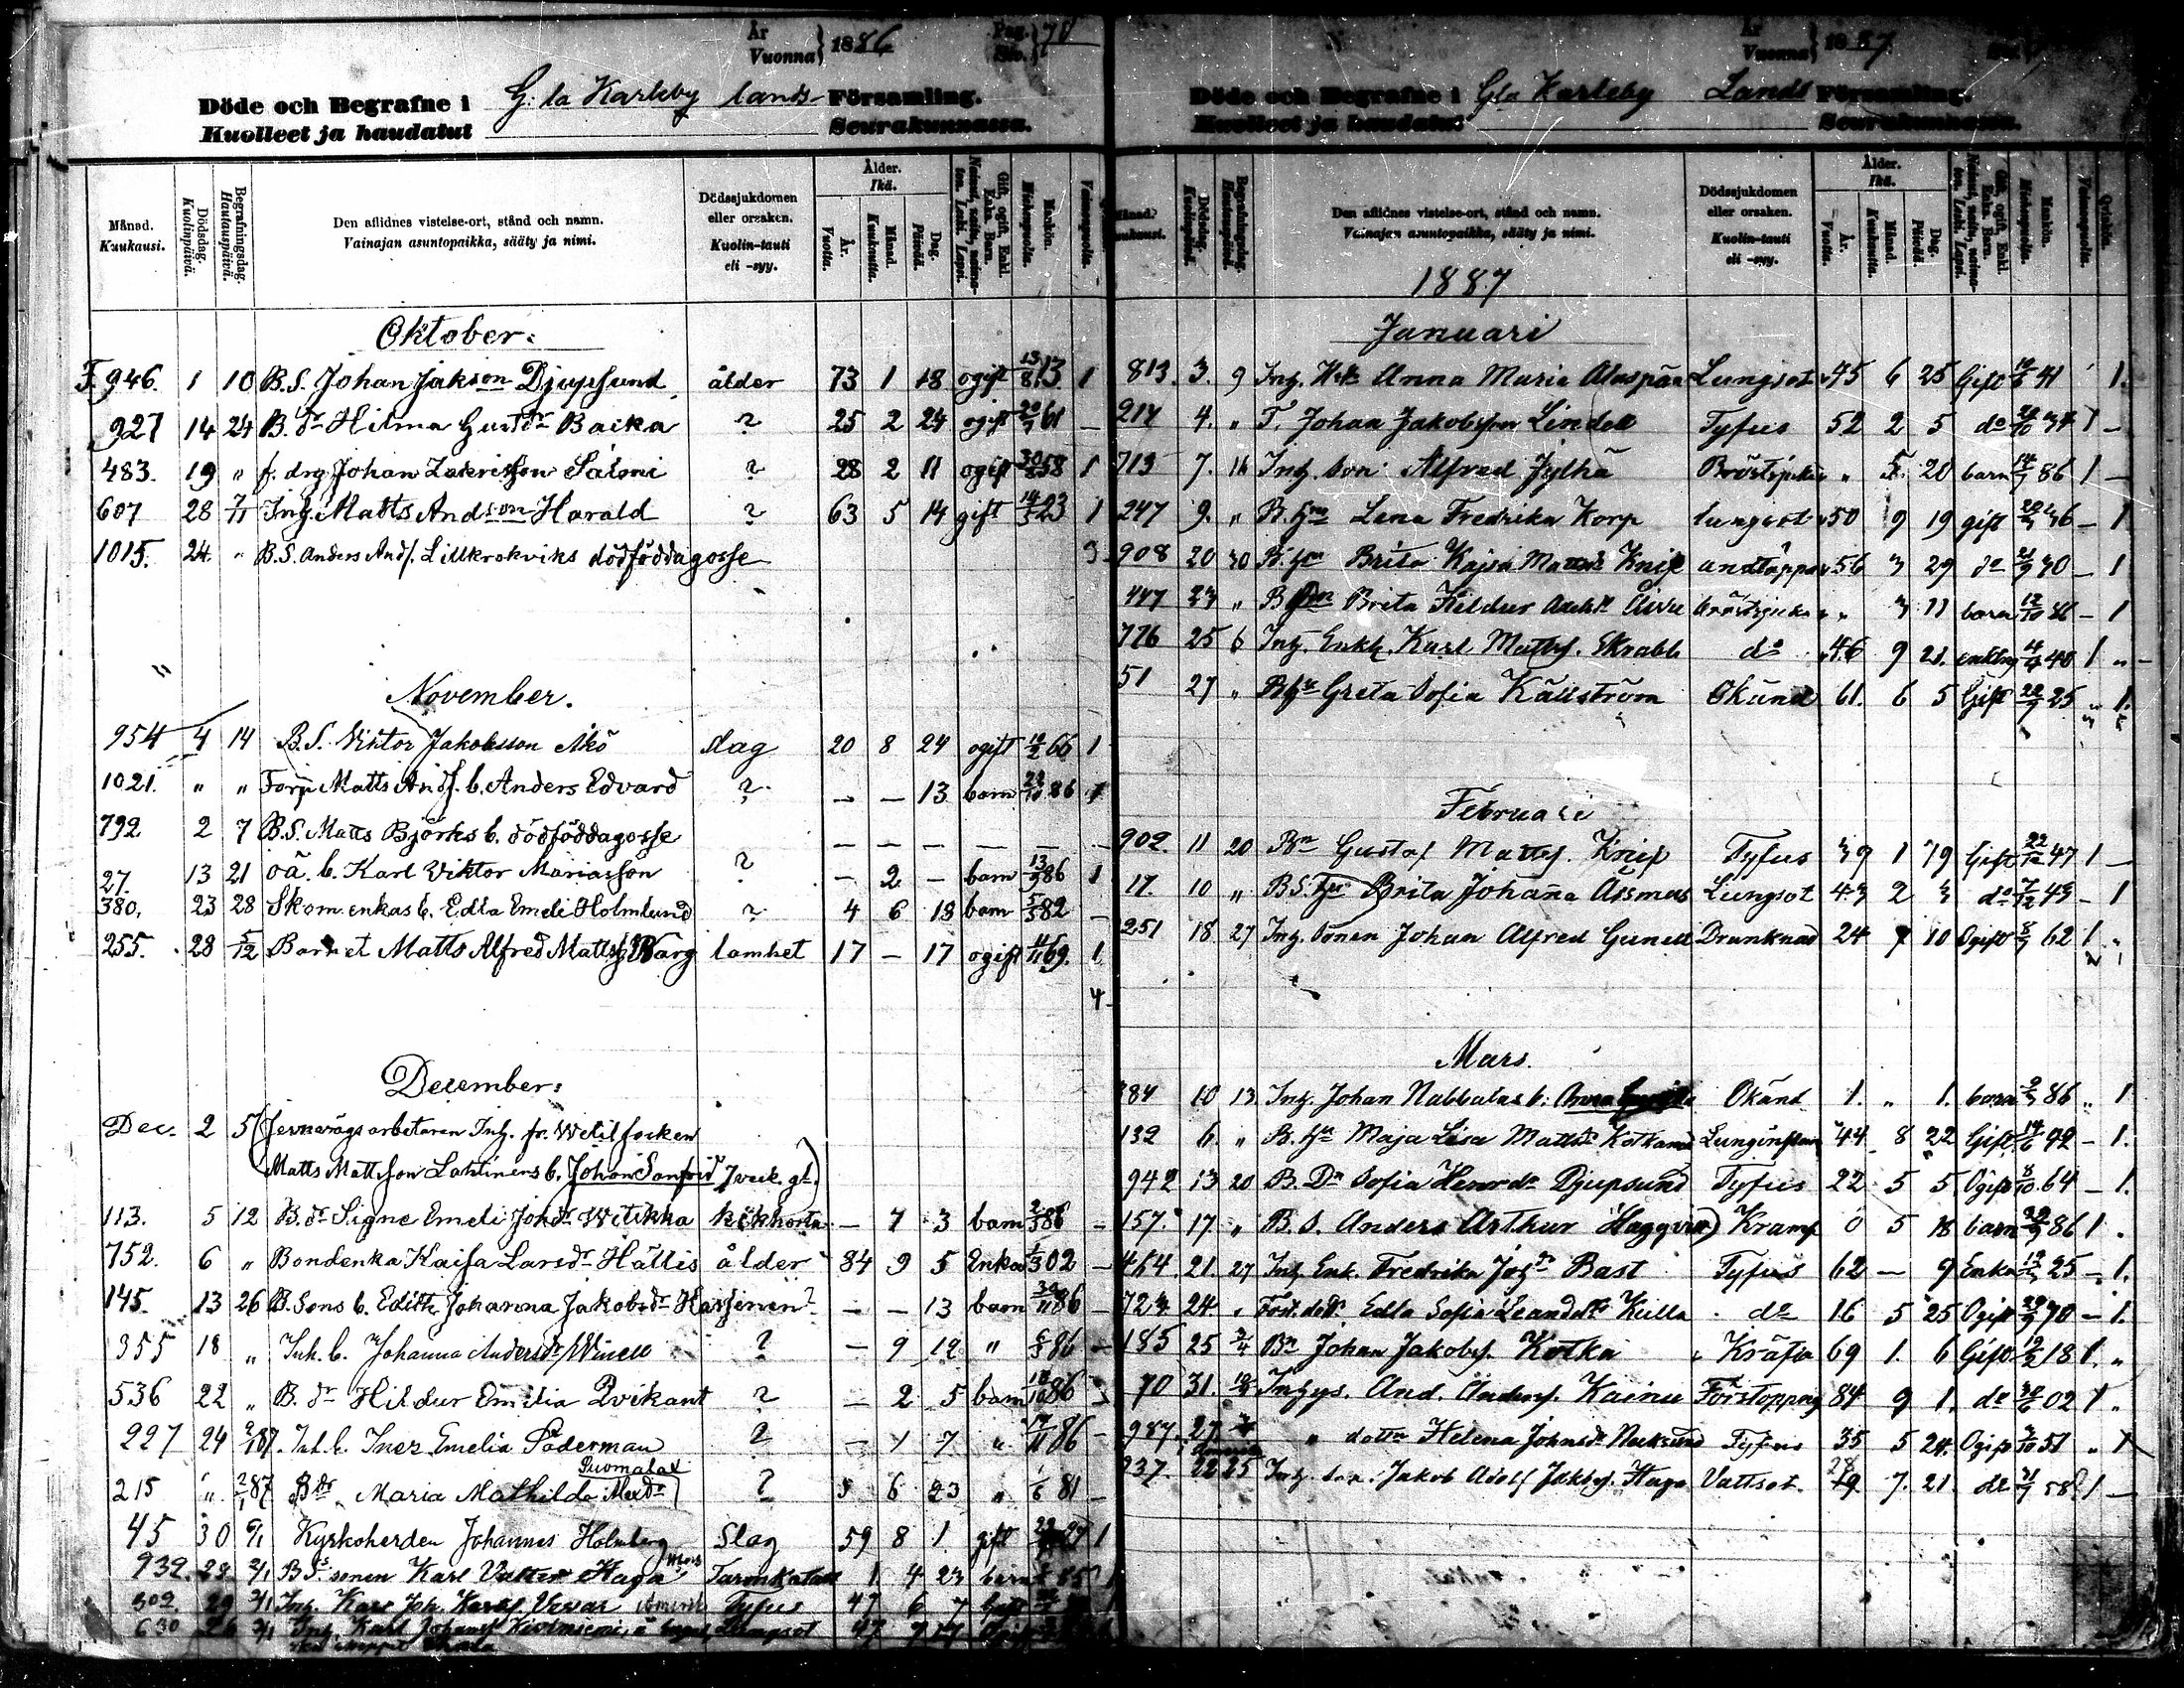 År Vuonna } 1886 Pag. Siv. } 70
Döde och Begrafne i G:la Karleby lands Församling.
Kuolleet ja haudatut Seurakunnassa.
Månad. Kuukausi.
Dödsdag. Kuolinpäivä.
Begrafningsdag. Hautauspäivä.
Den aflidnes vistelse-ort, stånd och namn. Vainajan asuntopaikka, sääty ja nimi.
Dödssjukdomen eller orsaken. Kuolin-tauti eli -syy.
Ålder. Ikä.
År. Vuotta. Månad. Kuukautta. Dag. Päivää.
Oktober.
F. 946. 1 10 B.S. Johan Jakson Djupsund ålder 73 1 18 ogift 13/8 13 1
927 14 24 B. dr Hilma Gustdr Backa ? 25 2 24 ogift 20/7 61 –
483. 19 " f. drg Johan Zakrisson Saloni ? 28 2 11 ogift 58 1
607 28 7/11 Inh. Matts Andson Harald ? 63 5 14 gift 14/5 23 1
1015. 24. " B.S. Anders Ands. Lillkrokviks dödföddagosse
3
November.
954 4 14 B.S. Viktor Jakobsson Åkö slag 20 8 24 ogift 66 1
1021. " " Torp Matts Ands. b. Anders Edvard ? – – 13 barn 22/10 86 1
792 2 7 B.S. Matts Björks b. dödföddagosse – – – –
27. 13 21 oä. b. Karl Viktor Mariasson ? – 2 – barn 13/9 86 1
380. 23 28 Skom. enkas b. Edla Emeli Holmlund ? 4 6 18 barn 5/5 82 –
255. 28 5/12 Barnet Matts Alfred Matts. Warg lamhet 17 – 17 ogift 11/11 69. 1
4
December:
Dec. 2 5 (Jernvägsarbetaren Inh. fr. Wetil socken
Matts Mattsson Lahtinens b. Johan Sanfrid 7 veck. gl.)
113. 5 12 B. dr Signe Emeli Johdr Witikka kikhosta – 7 3 barn 2/5 86 –
752. 6 " Bondenka Kaisa Larsdr Hällis ålder 84 9 5 Enka 1/3 02 –
145. 13 26 B. Sons b. Edith Johanna Jakobsdr ? – – 13 barn 30/11 86 –
355 18 " Inh. b. Johanna Andersdr ? – 9 12 " 86 –
536 22 " B. dr Hildur Emilia Qvikant ? – 2 5 barn 86 –
227 24 2/1 87. Inh. b. Inez Emelia Söderman ? – 1 7 " 17/11 86 –
215 " 2/1 87 Bdr Maria Mathilda Alexdr Puomalax ? 5 6 23 " 1/6 81 –
45 30 6/1 Kyrkoherden Johannes Holmberg Slag 59 8 1 gift 27 1
939. 28 2/1 B.S. sonen Karl Valter Haga 1 4 23 barn 85 1
302. 29 2/1 Inh. Tyfus 47 6 7 Gift
630 26 2/1 Inh. Karl Johans. Lungsot 47
År Vuonna } 1887
Döde och Begrafne i Gla Karleby Lands Församling.
Kuolleet ja haudatut Seurakunnassa.
Den aflidnes vistelse-ort, stånd och namn. Vainajan asuntopaikka, sääty ja nimi.
Dödssjukdomen eller orsaken. Kuolin-tauti eli -syy.
Ålder. Ikä.
År. Vuotta. Månad. Kuukautta. Dag. Päivää.
1887
Januari
813. 3. 9 Inh. Hu Anna Maria Alaspää Lungsot 45 6 25 Gift 41 1.
214 4. " T. Johan Jakobsson Lindell Tyfus 52 2 5 do 34 1 –
713 7. 16 Inh. son Alfred Jylhä Bröstsjuka " 5. 20 barn 86 1 –
247 9. " B. Hu Lena Fredrika Korp lungsot 50 9 19 gift 36 – 1
908 20 30 B. Hu Brita Kajsa Mattsdr Knif andtäppa 56 3 29 do 30 – 1
447 23 " B. Brita Hildur bröstsjuka " 3 11 barn 12/10 86 – 1
776 25 6 Inh. Enkl. Karl Matts. Skrabb do 46 9 21. enkling 40 1 " –
51 27 " Greta Sofia Källström Okänd 61. 6 5 Gift 22/7 25 " 1.
Februari
902. 11 20 Bn Gustaf Matts. Knif Tyfus 39 1 19 Gift 22/12 47 1 –
17. 10 " B.S. Hu Brita Johanna Åssmus Lungsot 43 2 3 do 7/12 43 – 1
251 18 27 Inh. sonen Johan Alfred Gunell Drunknad 24 7 10 Ogift 8/7 62 1 "
Mars.
384 10 13 Inh. Johan Nabbalas b. Anna Okänd 1. " 1. barn 86 " 1
132 6. " B. Hu Maja Lisa Mattsdr Lunginflam 44 8 22 Gift 42 – 1.
942 13 20 B. Dr Sofia Henrdr Djupsund Tyfus 22 5 5 Ogift 8/10 64 – 1.
157. 17 " B. S. Anders Arthur Haggvist Kramp 0 5 18 barn 86 1 .
464. 21. 27 Inh. Enk. Fredrika Johdr Bast Tyfus 62 – 9 Enka 25 – 1.
723 24. " Edla Sofia Leandsdr Kulla do 16 5 25 Ogift 70 – 1.
185 25 3/4 Bn Johan Jakobs. Kotka Kräfta 69 1. 6 Gift 19/2 18 1. "
70 31. Inhys. And. Anders. Kainu Förstoppng 84 9 1. do 30/6 02 1 "
987. 27 " dottr Helena Johnsdr Tyfus 35 5 24. Ogift 51 " 1
237. 22 25 Inh. son. Jakob Adolf Jakobs. Haga Vattsot. 28 7. 21 do 58 1 –